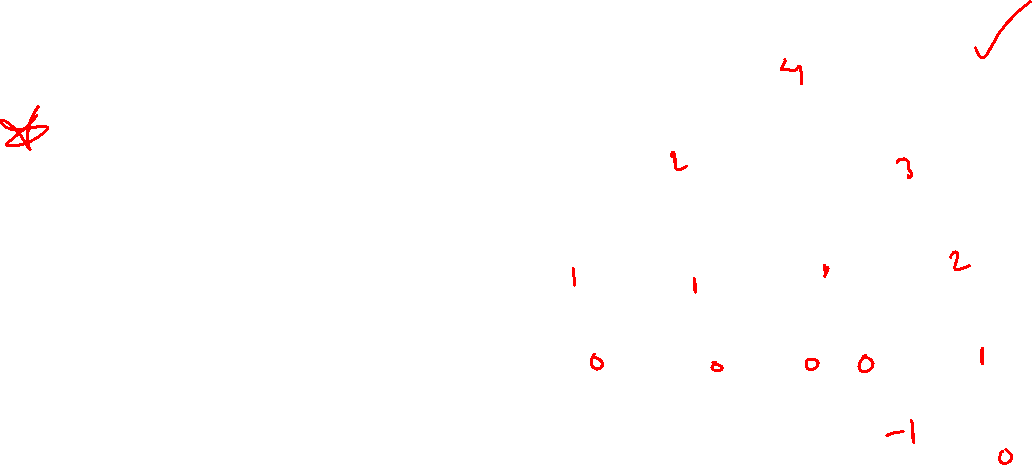 4
2 3
1 1 1 2
0 0 0 0 1
-1
0